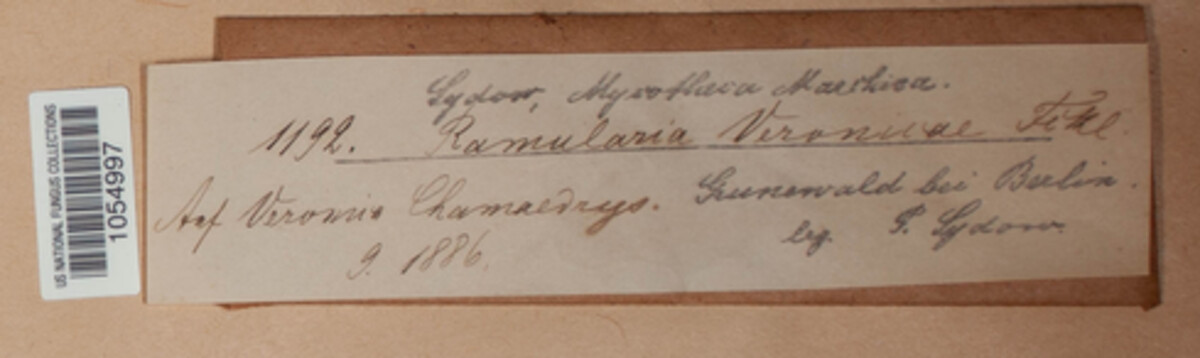 US NATIONAL FUNGUS COLLECTIONS
1054997
Sydow, Mycotheca Marchica.
1192. Ramularia Veronicae Fckl.
Auf Veronic Chamaedrys. Grunewald bei Berlin.
9. 1886. leg. P. Sydow.